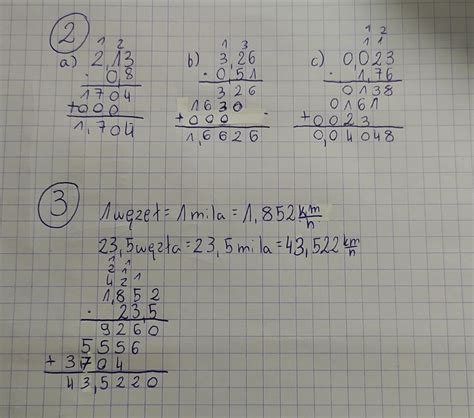 2
a) 2,13 b) 3,26 c) 0,023
1 2 1 3 1 2
1 1
· 0,8 · 0,51 · 1,76
1704 326 0138
+000 1630 0161
1,704 +000 +0023
1,6626 0,04048
3
1 węzeł = 1 mila = 1,852 km/h
23,5 węzła = 23,5 mila = 43,522 km/h
1
2 1
4 2 1
1,852
· 23,5
9260
5556
+ 3704
43,5220